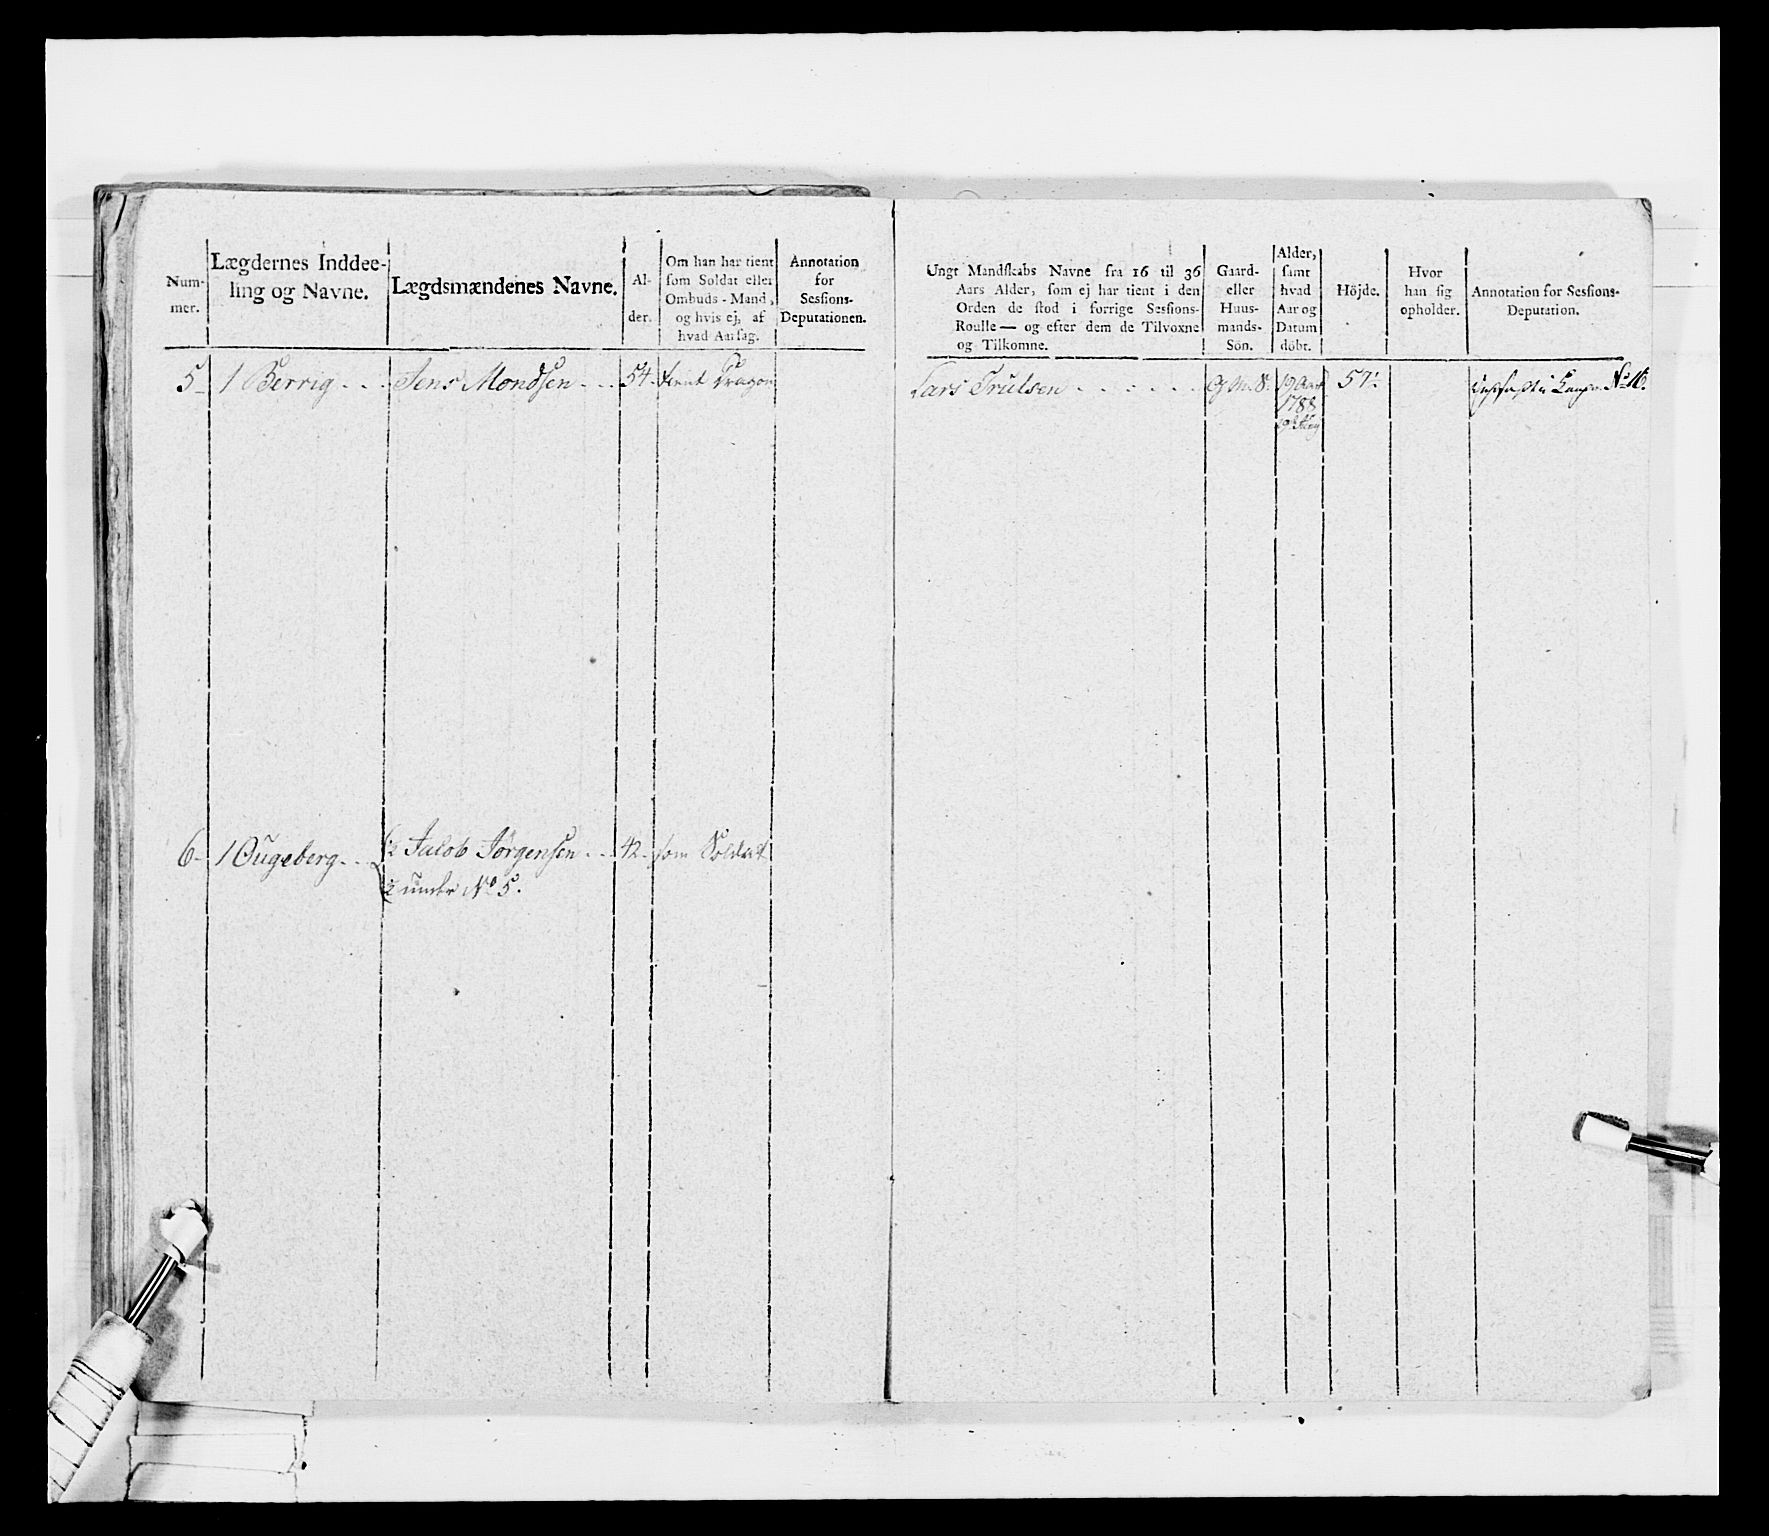 Num-
mer.
Lægdernes Inddee-
ling og Navne.
Lægdsmændenes Navne.
Al-
der.
Om han har tient
som Soldat eller
Ombuds-Mand,
og hvis ej, af
hvad Aarsag.
Annotation
for
Sessions-
Deputationen.
5 1 Berrig Jens Mondsen 54 tient Dragon
6 1 Ougeberg ½ Jacob Jørgensen 42 som Soldat
½ under No 5.
Ungt Mandskabs Navne fra 16 til 36
Aars Alder, som ej har tient i den
Orden de stod i forrige Sessions-
Roulle — og efter dem de Tilvoxne
og Tilkomne.
Gaard-
eller
Huus-
mands-
Sön.
Alder,
samt
hvad
Aar og
Datum
döbt.
Höjde.
Hvor
han sig
opholder.
Annotation for Sessions-
Deputation.
Lars Trulsen 19 Aar 57 No 16.
1788